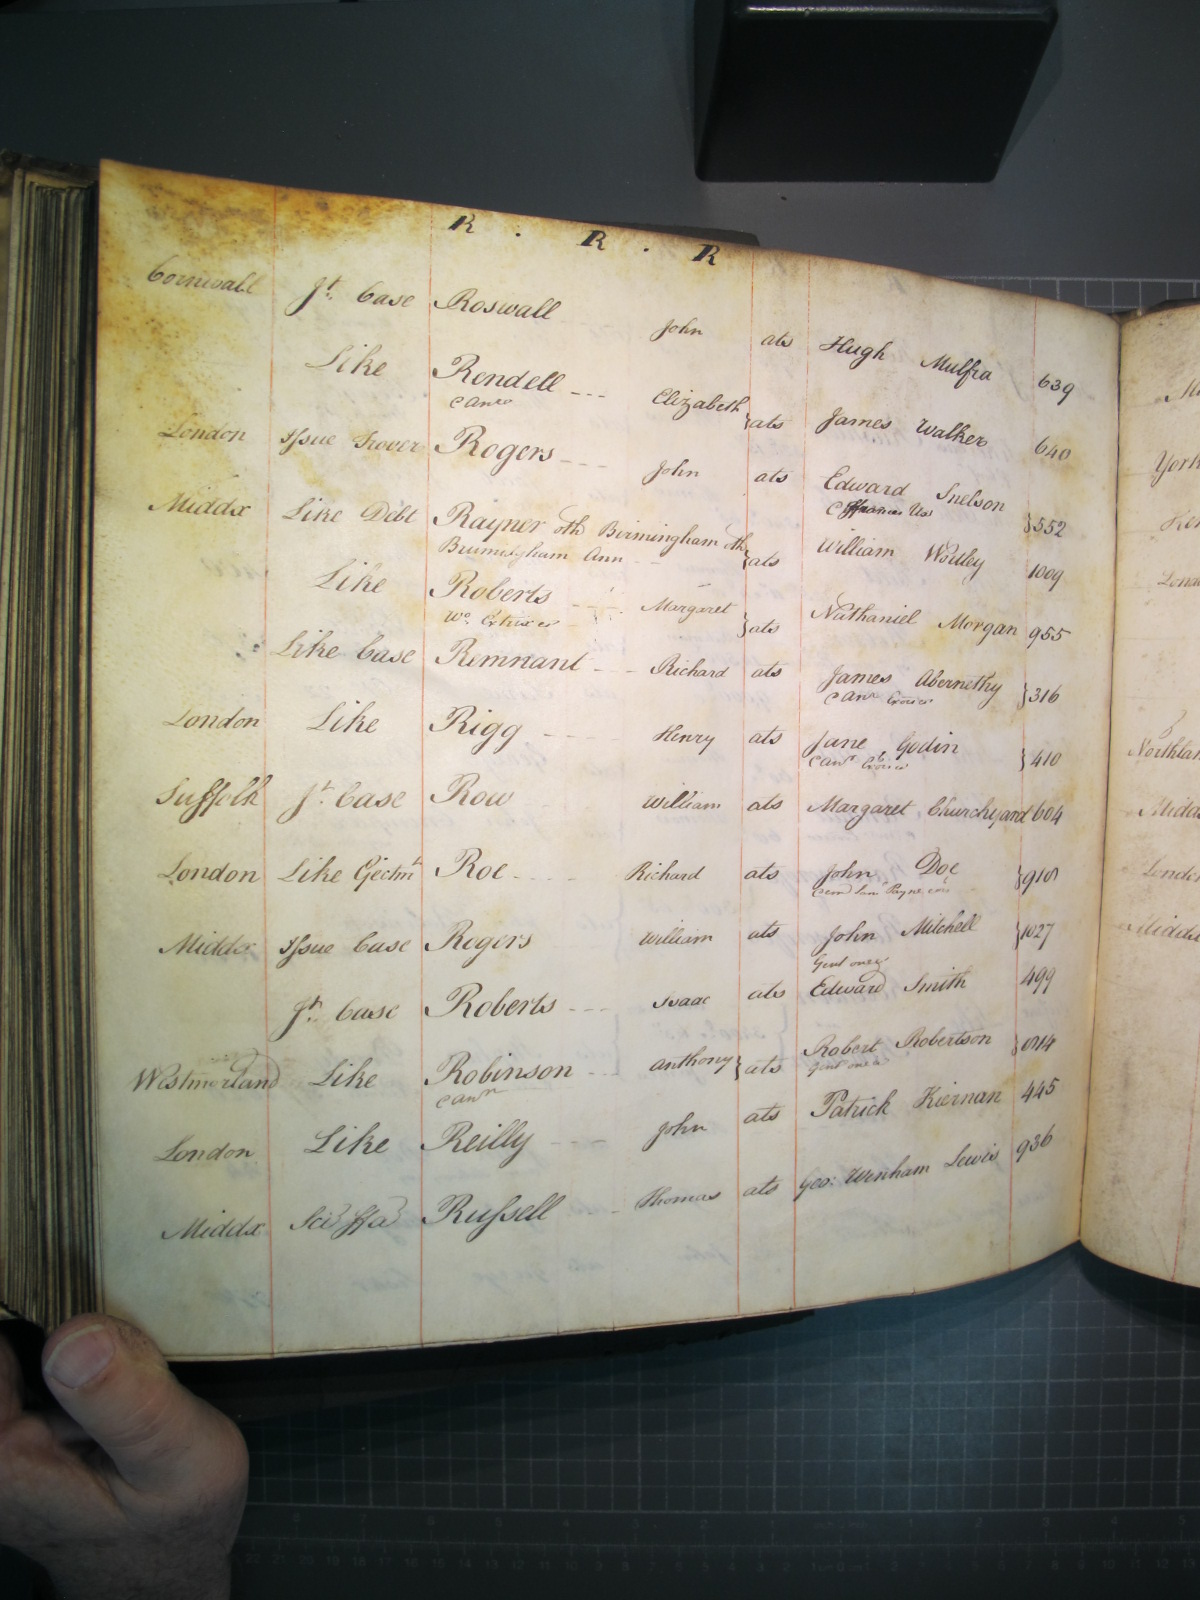 R . R . R
Cornwall Jt. Case Roswall John ats Hugh Mulfra 639
Like Rendell --- Elizabeth } ats James Walker 640
London Issue Trover Rogers --- John ats Edward Snelson } 552
Middx Like Debt Rayner oth Birmingham oth } ats William Wortley 1009
Brumidgham Ann
Like Roberts Margaret } ats Nathaniel Morgan 955
Like Case Remnant -- Richard ats James Abernethy } 316
London Like Rigg ---- Henry ats Jane Godin } 410
Suffolk Jt. Case Row William ats Margaret Churchyard 604
London Like Ejectmt Roe ---- Richard ats John Doe
Middx Issue Case Rogers William ats John Mitchell } 1027
Gent one &c
Jt. Case Roberts --- Isaac ats Edward Smith 499
Westmorland Like Robinson --- Anthony } ats Robert Robertson
Gent one &c
London Like Reilly --- John ats Patrick Kiernan 445
Middx Sci ffa Russell - Thomas ats Geo: Wenham Lewis 936